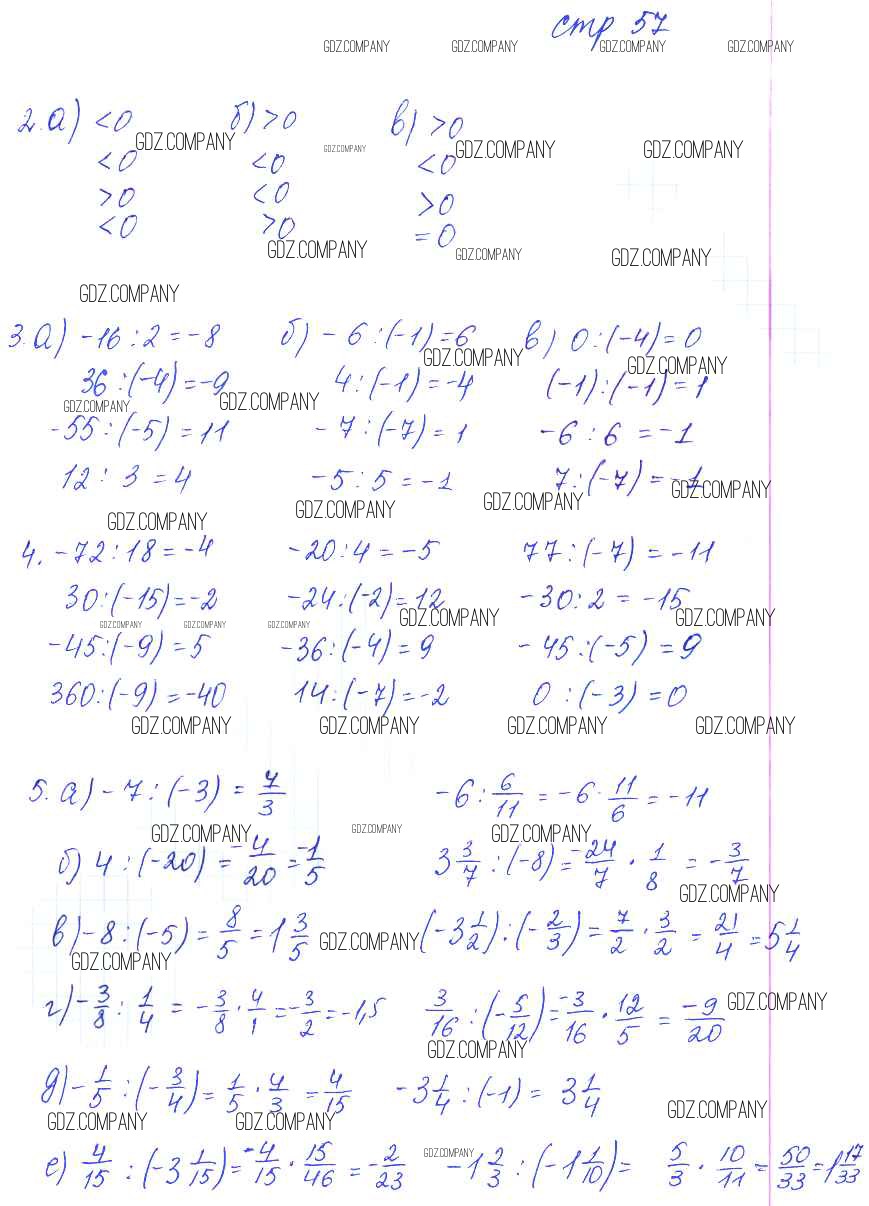 стр 57
GDZ.COMPANY GDZ.COMPANY GDZ.COMPANY GDZ.COMPANY
2. а) <0 б) >0 в) >0
GDZ.COMPANY GDZ.COMPANY GDZ.COMPANY GDZ.COMPANY
<0 <0 <0
>0 <0 >0
<0 >0 =0
GDZ.COMPANY GDZ.COMPANY GDZ.COMPANY
GDZ.COMPANY
3. а) -16 : 2 = -8 б) -6 : (-1) = 6 в) 0 : (-4) = 0
GDZ.COMPANY GDZ.COMPANY
36 : (-4) = -9 4 : (-1) = -4 (-1) : (-1) = 1
GDZ.COMPANY GDZ.COMPANY
-55 : (-5) = 11 -7 : (-7) = 1 -6 : 6 = -1
12 : 3 = 4 -5 : 5 = -1 7 : (-7) = -1
GDZ.COMPANY GDZ.COMPANY GDZ.COMPANY GDZ.COMPANY
4. -72 : 18 = -4 -20 : 4 = -5 77 : (-7) = -11
30 : (-15) = -2 -24 : (-2) = 12 -30 : 2 = -15
GDZ.COMPANY GDZ.COMPANY GDZ.COMPANY GDZ.COMPANY GDZ.COMPANY
-45 : (-9) = 5 -36 : (-4) = 9 -45 : (-5) = 9
360 : (-9) = -40 14 : (-7) = -2 0 : (-3) = 0
GDZ.COMPANY GDZ.COMPANY GDZ.COMPANY GDZ.COMPANY
5. а) -7 : (-3) = 7/3 -6 : 6/11 = -6 · 11/6 = -11
GDZ.COMPANY GDZ.COMPANY GDZ.COMPANY
б) 4 : (-20) = -4/20 = -1/5 3 3/7 : (-8) = -24/7 · 1/8 = -3/7
GDZ.COMPANY
в) -8 : (-5) = 8/5 = 1 3/5 (-3 1/2) : (-2/3) = 7/2 · 3/2 = 21/4 = 5 1/4
GDZ.COMPANY GDZ.COMPANY
г) -3/8 : 1/4 = -3/8 · 4/1 = -3/2 = -1,5 3/16 : (-5/12) = -3/16 · 12/5 = -9/20
GDZ.COMPANY GDZ.COMPANY
д) -1/5 : (-3/4) = 1/5 · 4/3 = 4/15 -3 1/4 : (-1) = 3 1/4
GDZ.COMPANY GDZ.COMPANY GDZ.COMPANY
е) 4/15 : (-3 1/15) = -4/15 · 15/46 = -2/23 -1 2/3 : (-1 1/10) = 5/3 · 10/11 = 50/33 = 1 17/33
GDZ.COMPANY